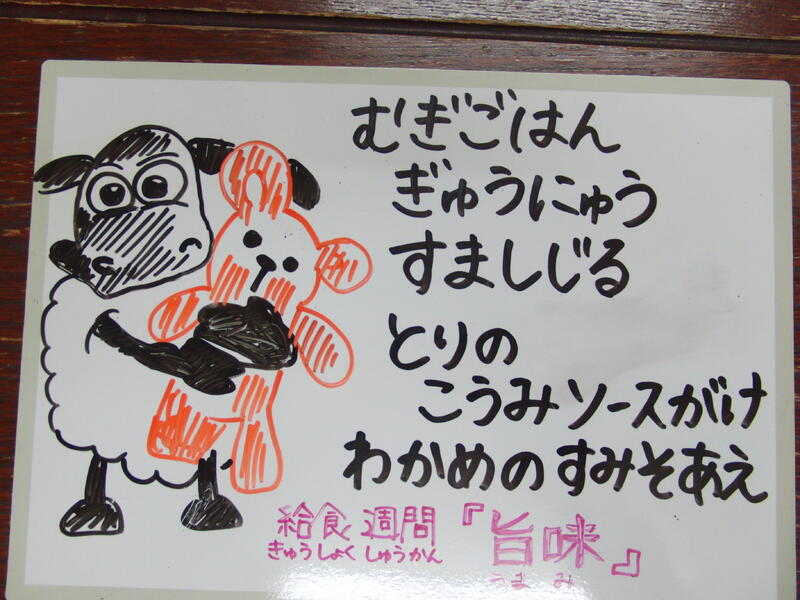 むぎごはん
ぎゅうにゅう
すましじる
とりの
こうみソースがけ
わかめのすみそあえ
給食週間『旨味』
きゅうしょくしゅうかん うまみ